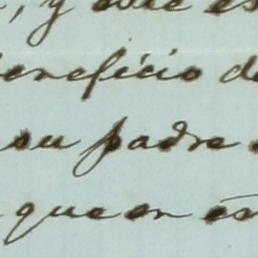 , y que es
beneficio de
su padre
que en es